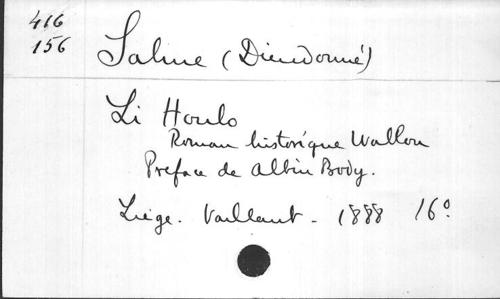 416
156
Salme (Dieudonné)
Li Houlo
Roman historique Wallon
Préface de Albin Body.
Liége. Vaillant. 1888 16°